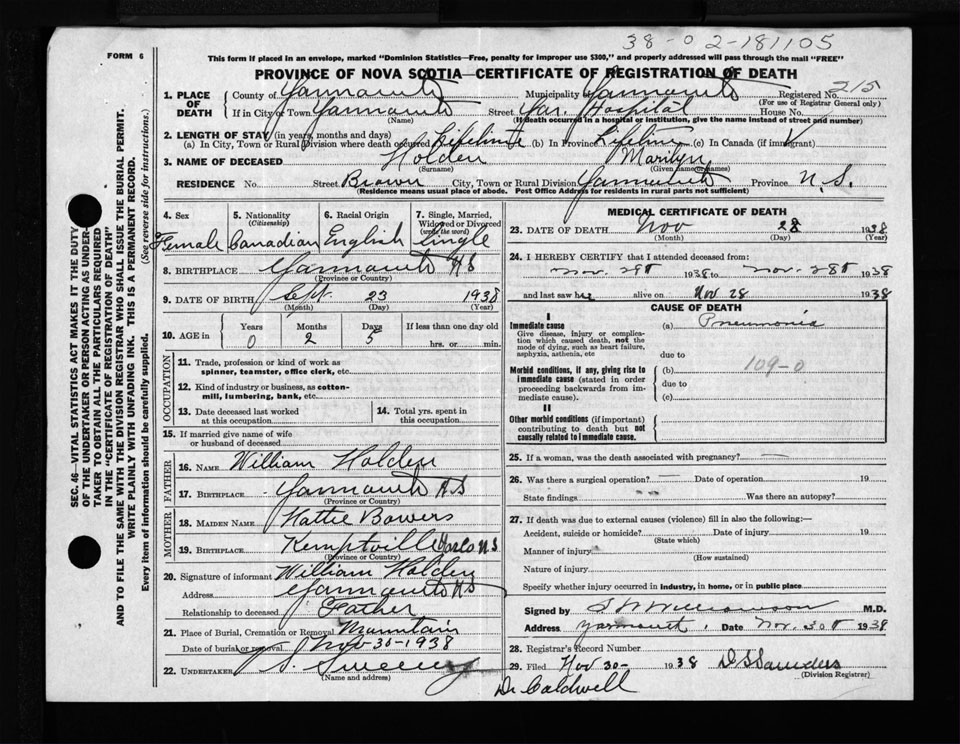 38-02-181105
FORM 6
This form if placed in an envelope, marked "Dominion Statistics—Free, penalty for improper use $300," and properly addressed will pass through the mail "FREE"
PROVINCE OF NOVA SCOTIA—CERTIFICATE OF REGISTRATION OF DEATH
215
1. PLACE OF DEATH County of Yarmouth Municipality of Yarmouth Registered No.
(For use of Registrar General only)
If in City or Town Yarmouth Street Yar. Hospital House No.
(Name) (If death occurred in a hospital or institution, give the name instead of street and number)
2. LENGTH OF STAY (in years, months and days)
(a) In City, Town or Rural Division where death occurred Lifetime (b) In Province Lifetime (c) In Canada (if immigrant)
3. NAME OF DECEASED Holden Marilyn
(Surname) (Given name or names)
RESIDENCE No. Street Brown City, Town or Rural Division Yarmouth Province N.S.
(Residence means usual place of abode. Post Office Address for residents in rural parts not sufficient)
4. Sex 5. Nationality 6. Racial Origin 7. Single, Married,
(Citizenship) Widowed or Divorced
(write the word)
Female Canadian English Single
8. BIRTHPLACE Yarmouth N S
(Province or Country)
9. DATE OF BIRTH Sept. 23 1938
(Month) (Day) (Year)
10. AGE in Years Months Days If less than one day old
0 2 5 hrs. or min.
OCCUPATION
11. Trade, profession or kind of work as
spinner, teamster, office clerk, etc.
12. Kind of industry or business, as cotton-
mill, lumbering, bank, etc.
13. Date deceased last worked
at this occupation
14. Total yrs. spent in
this occupation
15. If married give name of wife
or husband of deceased
FATHER
16. NAME William Holden
17. BIRTHPLACE Yarmouth N S
(Province or Country)
MOTHER
18. MAIDEN NAME Hattie Bowers
19. BIRTHPLACE Kemptville N.S.
(Province or Country)
20. Signature of informant William Holden
Address Yarmouth N S
Relationship to deceased Father
21. Place of Burial, Cremation or Removal Mountain
Date of burial or removal Nov-30-1938
22. UNDERTAKER Sweeney
(Name and address)
MEDICAL CERTIFICATE OF DEATH
23. DATE OF DEATH Nov 28 1938
(Month) (Day) (Year)
24. I HEREBY CERTIFY that I attended deceased from:
Nov. 28th 1938 to Nov. 28th 1938
and last saw her alive on Nov 28 1938
CAUSE OF DEATH
I
Immediate cause (a) Pneumonia
Give disease, injury or complica-
tion which caused death, not the
mode of dying, such as heart failure,
asphyxia, asthenia, etc
due to
Morbid conditions, if any, giving rise to
immediate cause (stated in order
proceeding backwards from im-
mediate cause).
(b) 109-0
due to
(c)
II
Other morbid conditions (if important)
contributing to death but not
causally related to immediate cause.
25. If a woman, was the death associated with pregnancy?
26. Was there a surgical operation? Date of operation 19
State findings Was there an autopsy?
27. If death was due to external causes (violence) fill in also the following:—
Accident, suicide or homicide? Date of injury 19
(State which)
Manner of injury
(How sustained)
Nature of injury
Specify whether injury occurred in industry, in home, or in public place
Signed by S W Williamson M.D.
Address Yarmouth, Date Nov. 30th 1938
28. Registrar's Record Number
29. Filed Nov 30- 1938 D S Saunders
(Division Registrar)
Dr Caldwell
SEC. 46—VITAL STATISTICS ACT MAKES IT THE DUTY
OF THE UNDERTAKER OR PERSON ACTING AS UNDER-
TAKER TO OBTAIN ALL THE PARTICULARS REQUIRED
IN THE "CERTIFICATE OF REGISTRATION OF DEATH"
AND TO FILE THE SAME WITH THE DIVISION REGISTRAR WHO SHALL ISSUE THE BURIAL PERMIT.
WRITE PLAINLY WITH UNFADING INK. THIS IS A PERMANENT RECORD.
Every item of information should be carefully supplied. (See reverse side for instructions.)